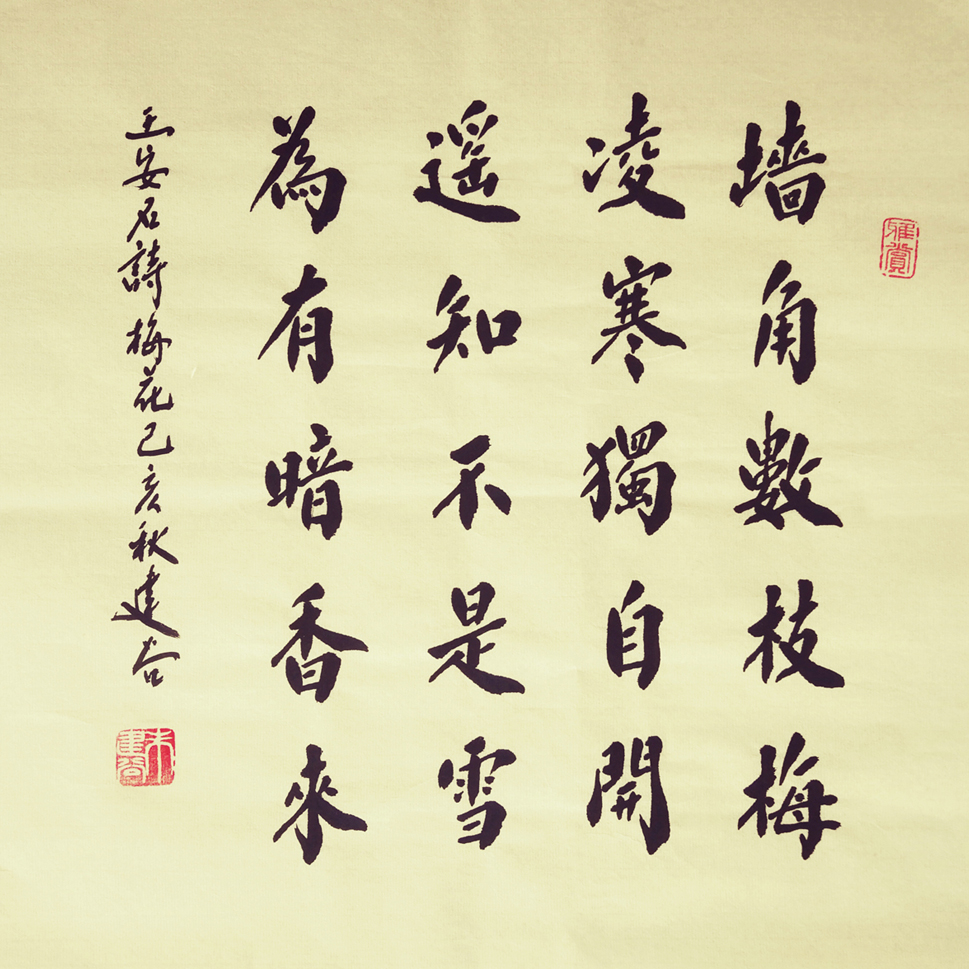 雅賞
墻角數枝梅
凌寒獨自開
遥知不是雪
為有暗香來
王安石詩梅花己亥秋建谷